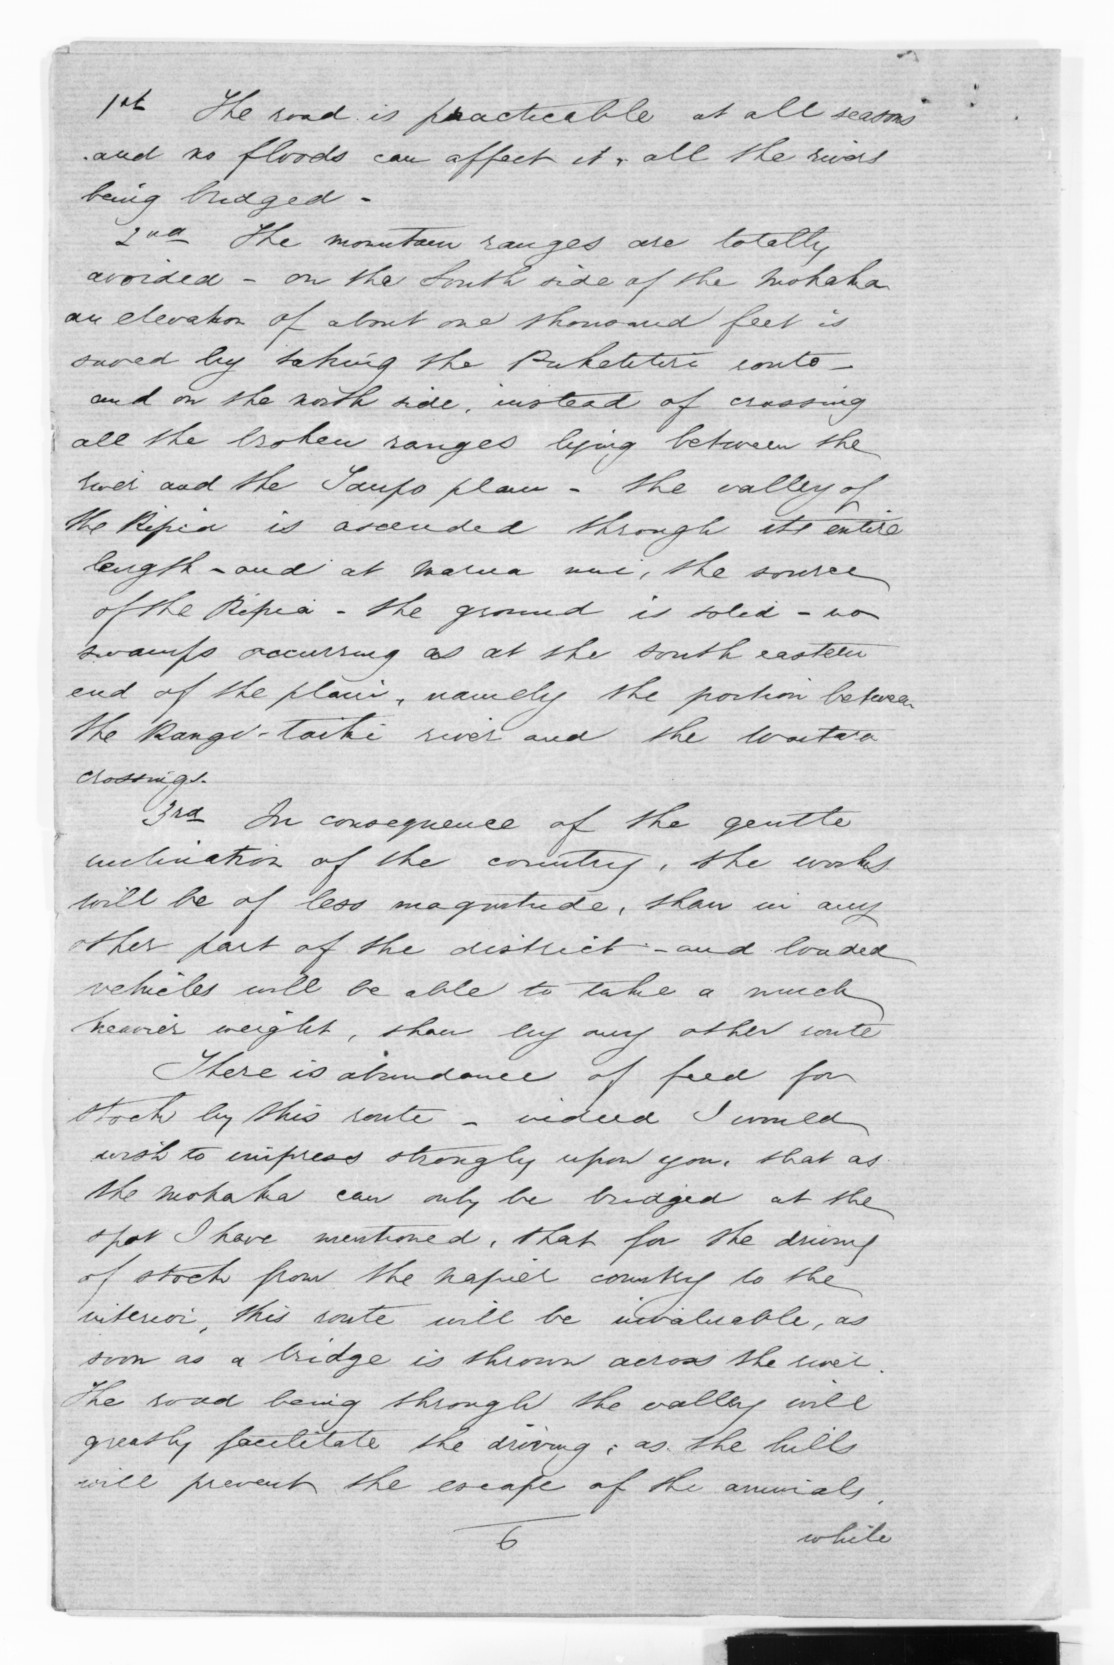 1st The road is practicable at all seasons
and no floods can affect it, all the rivers
being bridged -
2nd The mountain ranges are totally
avoided - on the South side of the Mohaka
an elevation of about one thousand feet is
saved by taking the Puketitiri route -
and on the north side, instead of crossing
all the broken ranges lying between the
river and the Taupo plain - the valley of
the Ripia is ascended through its entire
length - and at Marua nui, the source
of the Ripia - the ground is solid - no
swamps occurring as at the south eastern
end of the plain, namely the portion between
the Rangi-taiki river and the Waitara
crossings.
3rd In consequence of the gentle
inclination of the country, the works
will be of less magnitude, than in any
other part of the district - and loaded
vehicles will be able to take a much
heavier weight, than by any other route
There is abundance of feed for
stock by this route - indeed I would
wish to impress strongly upon you, that as
the Mohaka can only be bridged at the
spot I have mentioned, that for the driving
of stock from the Napier country to the
interior, this route will be invaluable, as
soon as a bridge is thrown across the river.
The road being through the valley will
greatly facilitate the driving, as the hills
will prevent the escape of the animals,
6 while